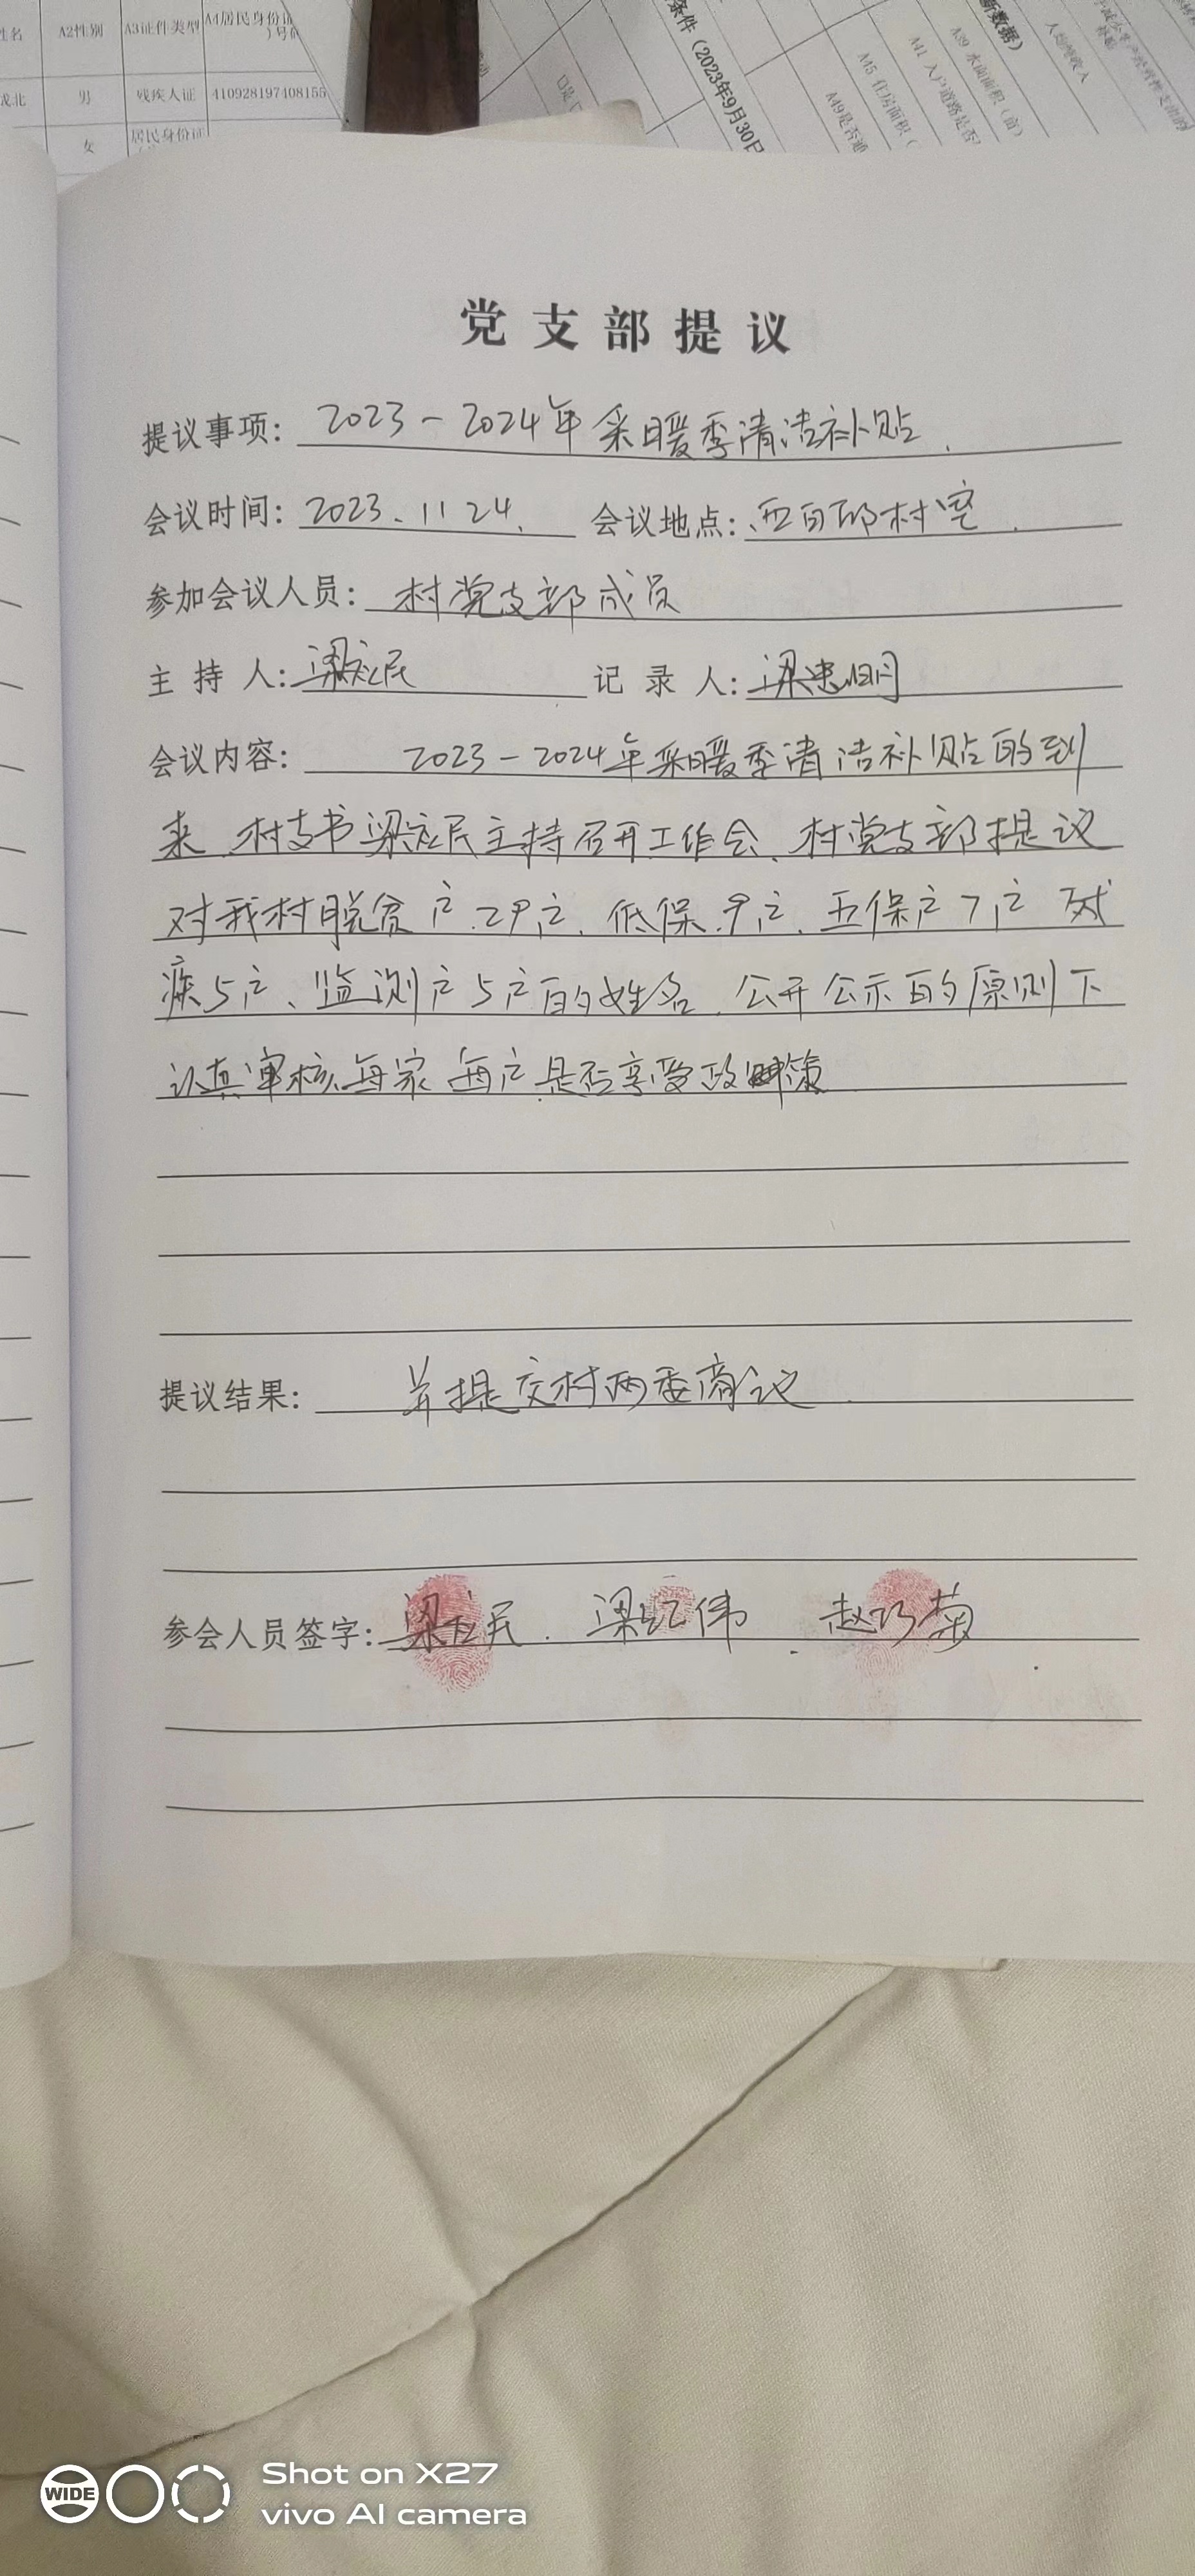 A2性别 A3证件类型 A4居民身份证
男 残疾人证 410928197408155
女 居民身份证
条件（2023年9月30日
新数据）
人均纯收入
A39 水面面积（亩）
A41 入户道路是否
A45 住房面积（
A49是否通
党支部提议
提议事项: 2023-2024年采暖季清洁补贴.
会议时间: 2023、11 24. 会议地点: 西白邱村室.
参加会议人员: 村党支部成员
主 持 人: 梁 民 记 录 人: 梁忠明
会议内容: 2023-2024年采暖季清洁补贴的到
来.村支书梁 民主持召开工作会、村党支部提议
对我村脱贫户29户、低保9户、五保户7户 残
疾5户、监测户5户的姓名.公开公示的原则下
认真审核每家每户是否享受政策
提议结果: 并提交村两委商议.
参会人员签字: 梁 民. 梁红伟. 赵巧菊
WIDE
Shot on X27
vivo AI camera